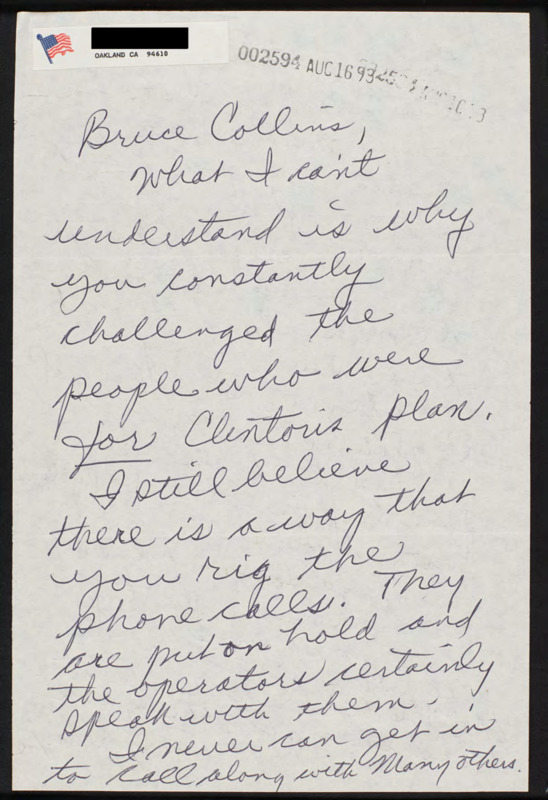 OAKLAND CA 94610
002594 AUG 16 93
Bruce Collins,
What I can't
understand is why
you constantly
challenged the
people who were
for Clinton's plan.
I still believe
there is a way that
you rig the
phone calls. They
are put on hold and
the operators certainly
speak with them.
I never can get in
to call along with many others.